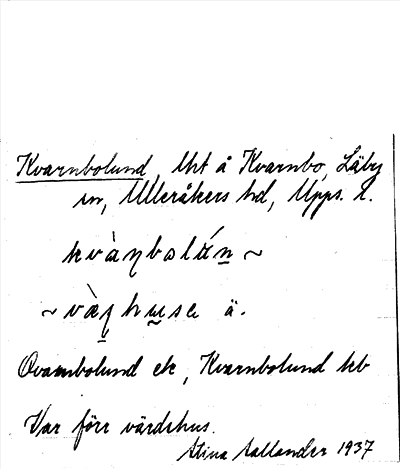 Kvarnbolund, Uht å Kvarnbo, Läby
sn, Ulleråkers hd, Upps. l.
kvàɳbolún̲ ~
~ væ̀ɳhu̲se ä.
Qvarnbolund ek, Kvarnbolund kb
Var förr värdshus.
Stina Sallander 1937